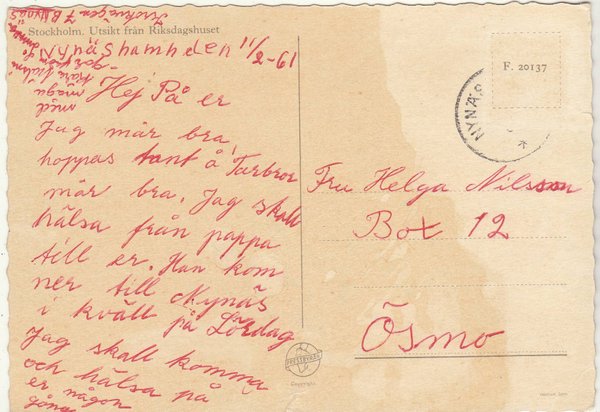 Stockholm. Utsikt från Riksdagshuset
Nynäshamn den 11/2-61
Hej På er
Jag mår bra,
hoppas tant å Farbror
mår bra. Jag skall
hälsa från pappa
till er. Han kom
ner till Nynäs
i kväll på Lördag
Jag skall komma
och hälsa på
er någon
gång
F. 20137
NYNÄS
Fru Helga Nilsson
Box 12
Ösmo
PRESSBYRÅN
Copyright